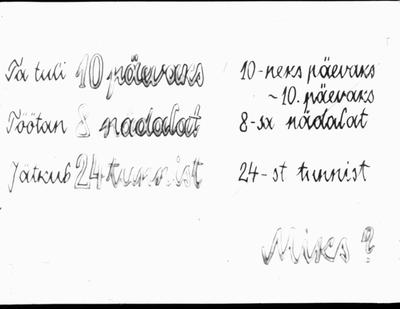 Ta tuli 10 päevaks 10-neks päevaks
~ 10. päevaks
Töötan 8 nädalat 8-sa nädalat
Jätkub 24 tunnist 24-st tunnist
Miks?